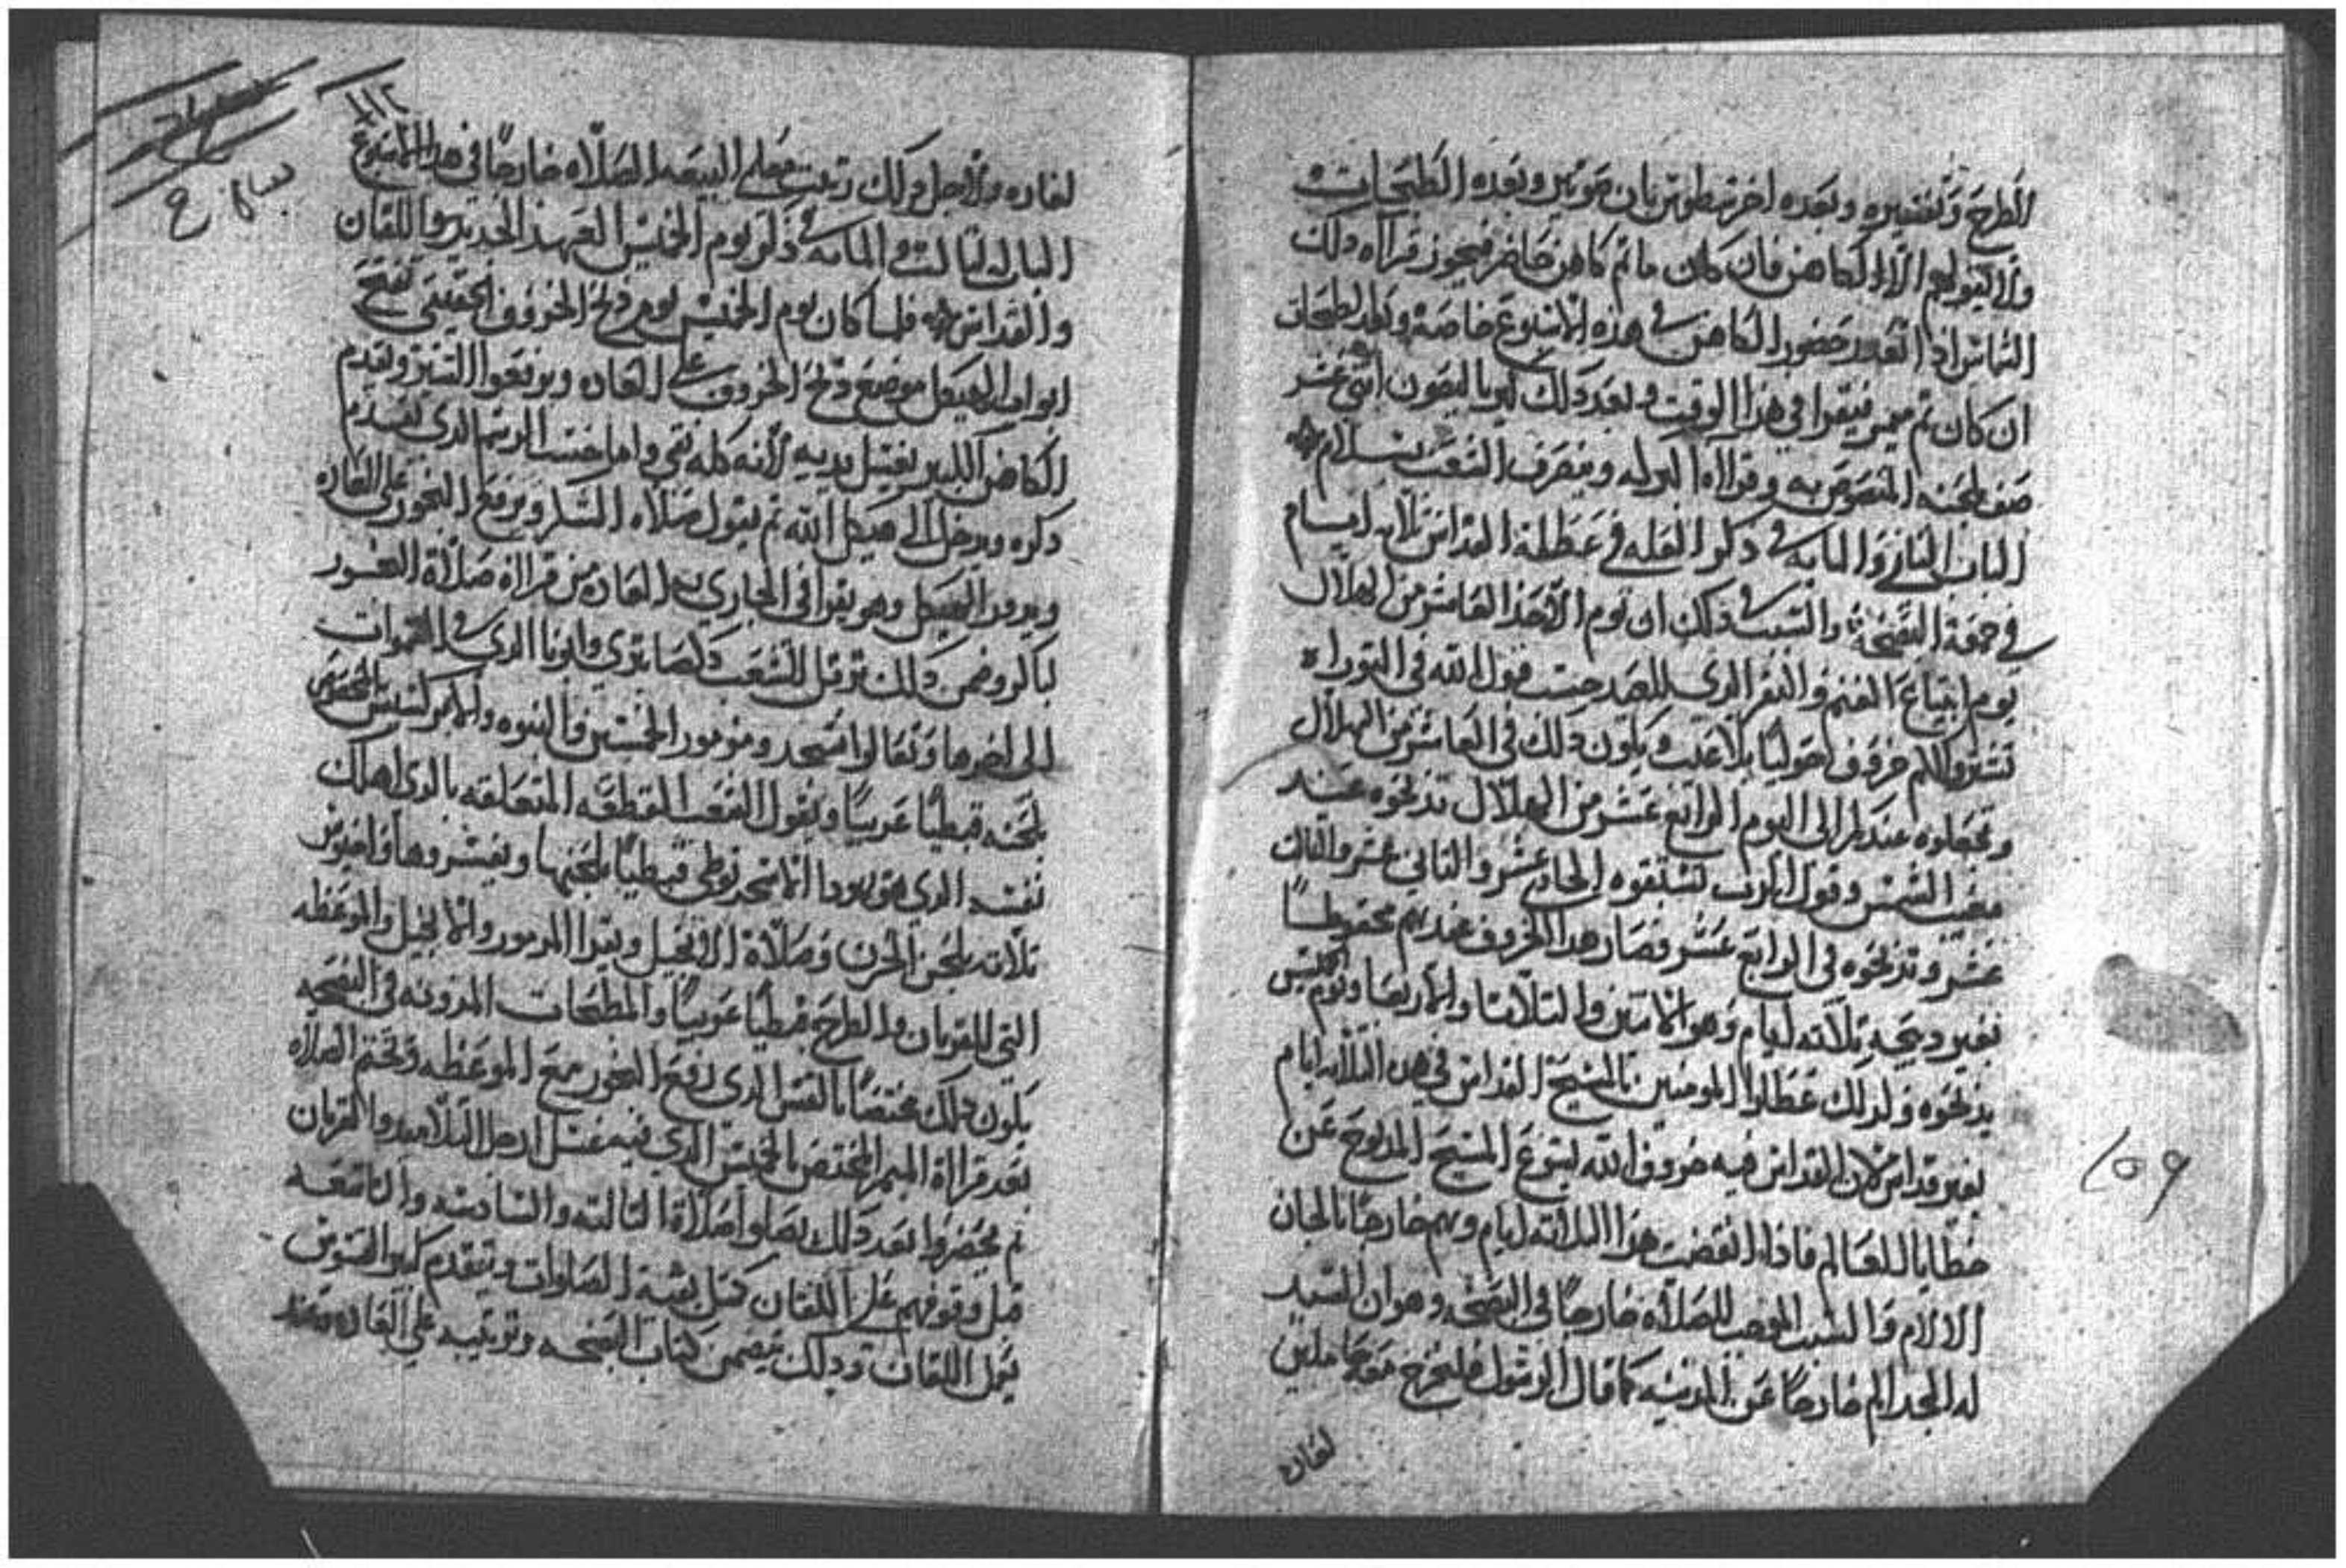 الطرح وتفسيره وبعده اخرسطوس بان نوتي وبعده الطبحات
ولا يقولهم الا الكاهن فان كان ما تم كاهن حاضر فيجوز قراه دلك
الشماس اذا تعدر حضور الكاهن في هذه الاسبوع خاصة
ان كان تم ميمر فيقرا في هذا الوقت وبعد دلك كيرياليصون اثني عشر
صف بلحنه المنصوص به وقراه البركه وينصرف الشعب بسلام
الباب الثاني والمايه في ذكر العله في عطلة القداس تلاته ايام
في جمعة البصخه والسبب في ذلك ان يوم الاحد العاشر من الهلال
يوم ابتياع الغنم والبقر الدي للصح حسب قول الله في التوراه
تشتروا لكم خروف حوليا بلا عيب ويكون دلك في العاشر من الهلال
وتجعلوه عندكم الى اليوم الرابع عشر من الهلال تدبحوه عند
مغيب الشمس وقول الرب تستبقوه الحادي عشر والتاني عشر والتالت
عشر وتدبحوه في الرابع عشر فصار هدا الخروف عندهم محفوظا
بغير دبيحه تلاته ايام وهو الاتنين والتلاتا والاربعا ويوم الخميس
يدبحوه ولدلك عطلوا المومنين بالمسيح القداس في هده التلاته ايام
بغير قداس لان القداس فيه خروف الله ايسوع المسيح المدبوح عن
خطايا العالم فاذا انقضت هدا التلاته ايام وهم خارجا بالحان
الالام والسبب الموجب للصلاه خارجا في البصخه وهو ان السيد
له المجد الم خارجا عن المدينه كما قال الرسول فلنخرج نحوه حاملين
لعاره
١٥٩
١١٢
لعاره ولاجل دلك رتبت معلمي البيعه الصلاه خارجا في هدا الاسبوع
الباب التالت والمايه في ذكر يوم الخميس العهد الجديد واللقان
والقداس فلما كان يوم الخميس يوم دبح الخروف الحقيقي تفتح
ابواب الهيكل موضع دبح الخروف على العاده ويرفعوا الستر ويتقدم
الكاهن الكبير يغسل يديه لانه كله نقي واما حسب الرسم الدي تقدم
دكره ويدخل الى هيكل الله تم يقول صلاه الشكر ويرفع البخور على العاده
ويدور الهيكل وهو يقرا في الجاري به العاده من قراة صلاة البخور
باكر وضمن دلك ترتل الشعب دكصابتري وابونا الدي في السموات
الى اخرها وتعالوا نسجد ومزمور الخمسين والنبوه
بلحنه قبطيا عربيا ويقول الشعب القطعه المتعلقه بالدي اهلك
نفسه الدي هو يودا قبطيا بلحنها ويفسروها واجيوس
تلاته بلحن الحزن وصلاة الانجيل ويقرا المزمور والانجيل والموعظه
التي للقربان والطرح قبطيا عربيا والطبحات المدونه في البصخه
يكون دلك مختصا بالقس الدي رفع البخور مع الموعظه وتختم الصلاه
بعد قراة الميمر المختص بالخميس الدي فيه غسل ارجل التلاميد والقربان
تم يحضروا بعد دلك يصلوا صلاة التالته والسادسه والتاسعه
قبل وقوفهم على اللقان كمثل بقية الصلوات ويتقدم كبير القسوس
يكمل اللقان ودلك يتضمن كتاب البصخه وترتيبه على العاده وعند